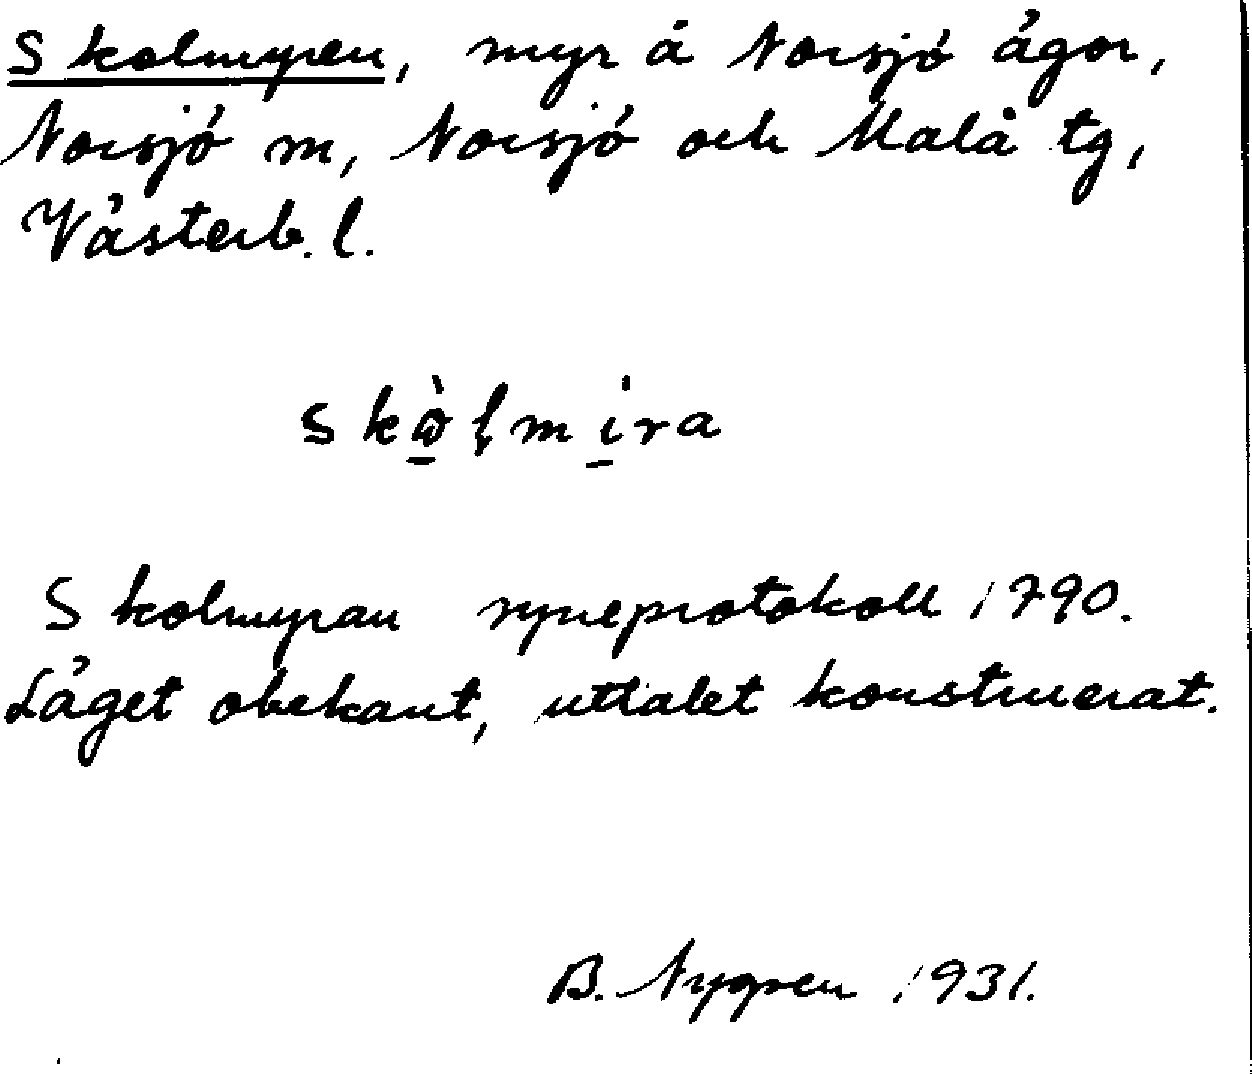 Skolmyren, myr å Norsjö ägor,
Norsjö sn, Norsjö och Malå tg,
Västerb. l.
Skolmyran syneprotokoll 1790.
Läget obekant, uttalet konstruerat.
B. Nygren 1931.